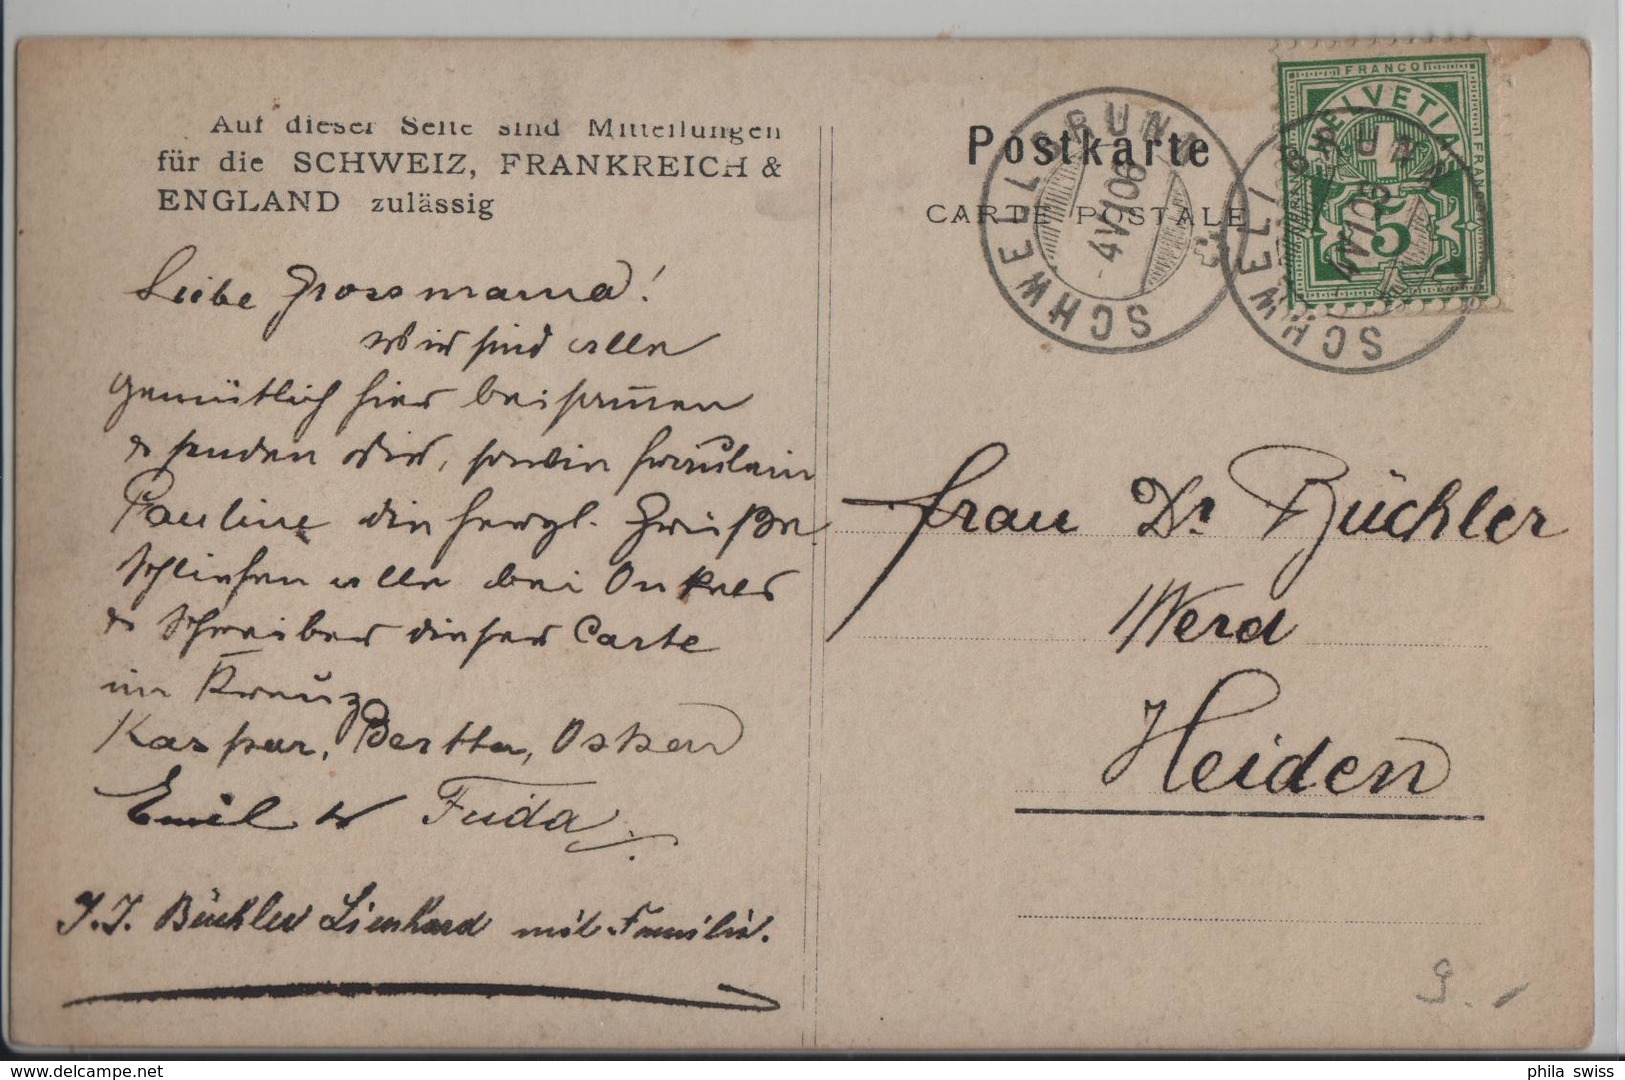 Auf dieser Seite sind Mitteilungen
für die SCHWEIZ, FRANKREICH &
ENGLAND zulässig
Liebe Grossmama!
Wir sind alle
gemütlich hier beisam̄en
& senden Dir, sowie Fräulein
Pauline die herzl. Grüße.
Schließen alle bei Onkels
& Schreiber dieser Carte
im Kreuz
Kaspar, Bertha, Oskar
Emil & Frida.
J. J. Büchler Lienhard mit Familie.
Postkarte
CARTE POSTALE
SCHWELLBRUNN
-4 V 10 6
SCHWELLBRUNN
-4 V 10 6
FRANCO
HELVETIA
FRANCO
FRANCO
5
Frau Dr Büchler
Werd
Heiden
9.-
phila swiss